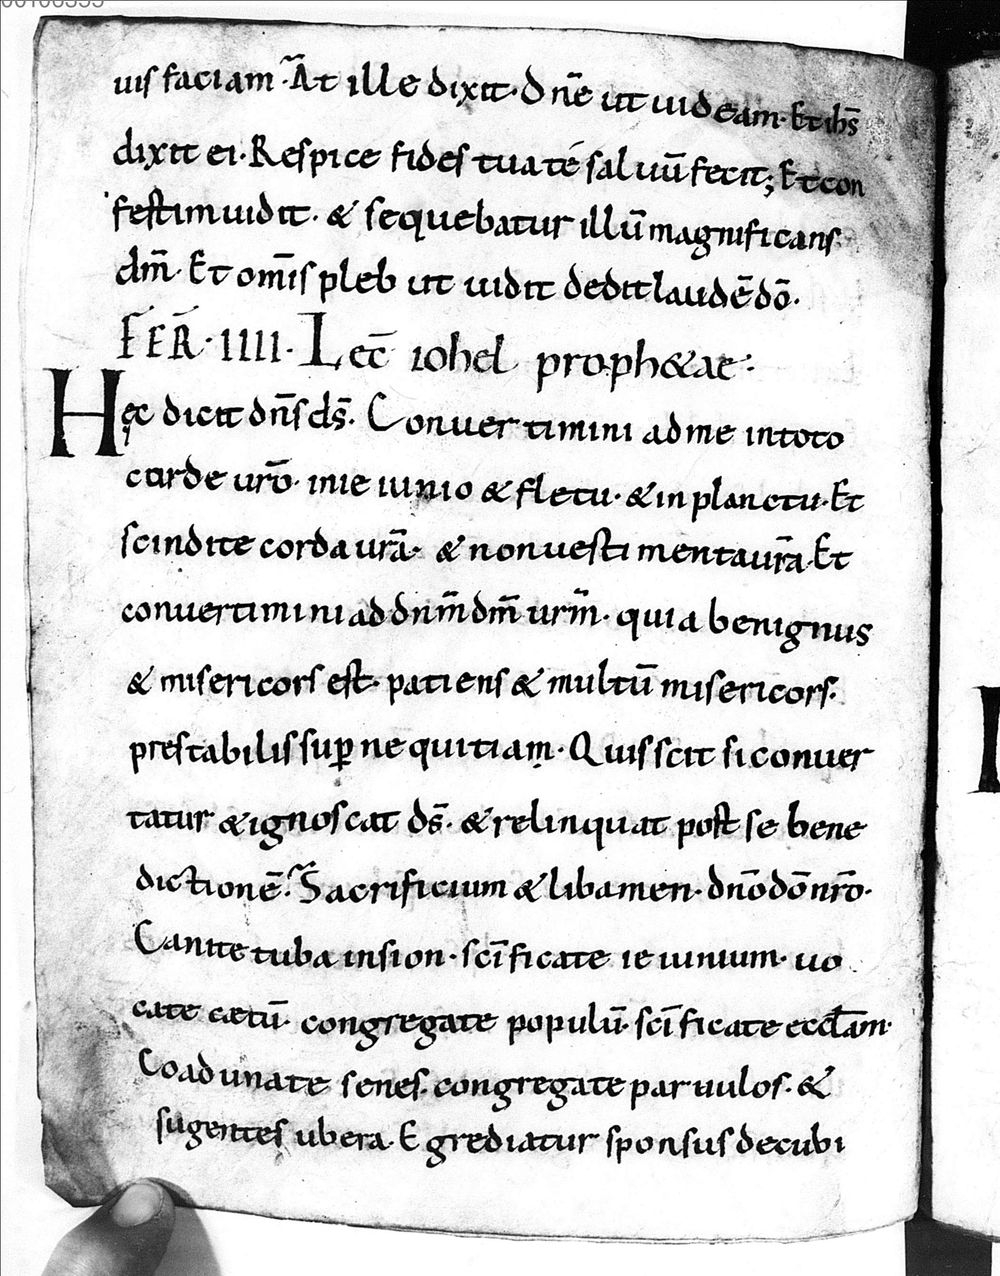 uis faciam. At ille dixit. Dn̄e ut uideam. Et ih̄s
dixit ei. Respice fides tua té saluū fecit; Et con
festim uidit. & sequebatur illū magnificans
dm̄. Et om̄is pleb ut uidit dedit laudē dō.
FER̄. IIII. Lec̄ iohel proph&ae.
Hęc dicit dn̄s ds̄. Conuertimini ad me in toto
corde urō. in ieiunio & fletu. & in planctu. Et
scindite corda urā. & non uestimenta urā. Et
conuertimini ad dnm̄ dm̄ urm̄. quia benignus
& misericors est. patiens & multū misericors.
prestabilis suꝑ nequitiam. Quis scit si conuer
tatur & ignoscat ds̄. & relinquat post se bene
dictionē. Sacrificium & libamen. dnō dō nrō.
Canite tuba in sion. scīficate ieiunium. uo
cate cætū. congregate populū. scīficate eccl̄am.
Coadunate senes. congregate paruulos. &
sugentes ubera. Egrediatur sponsus de cubi